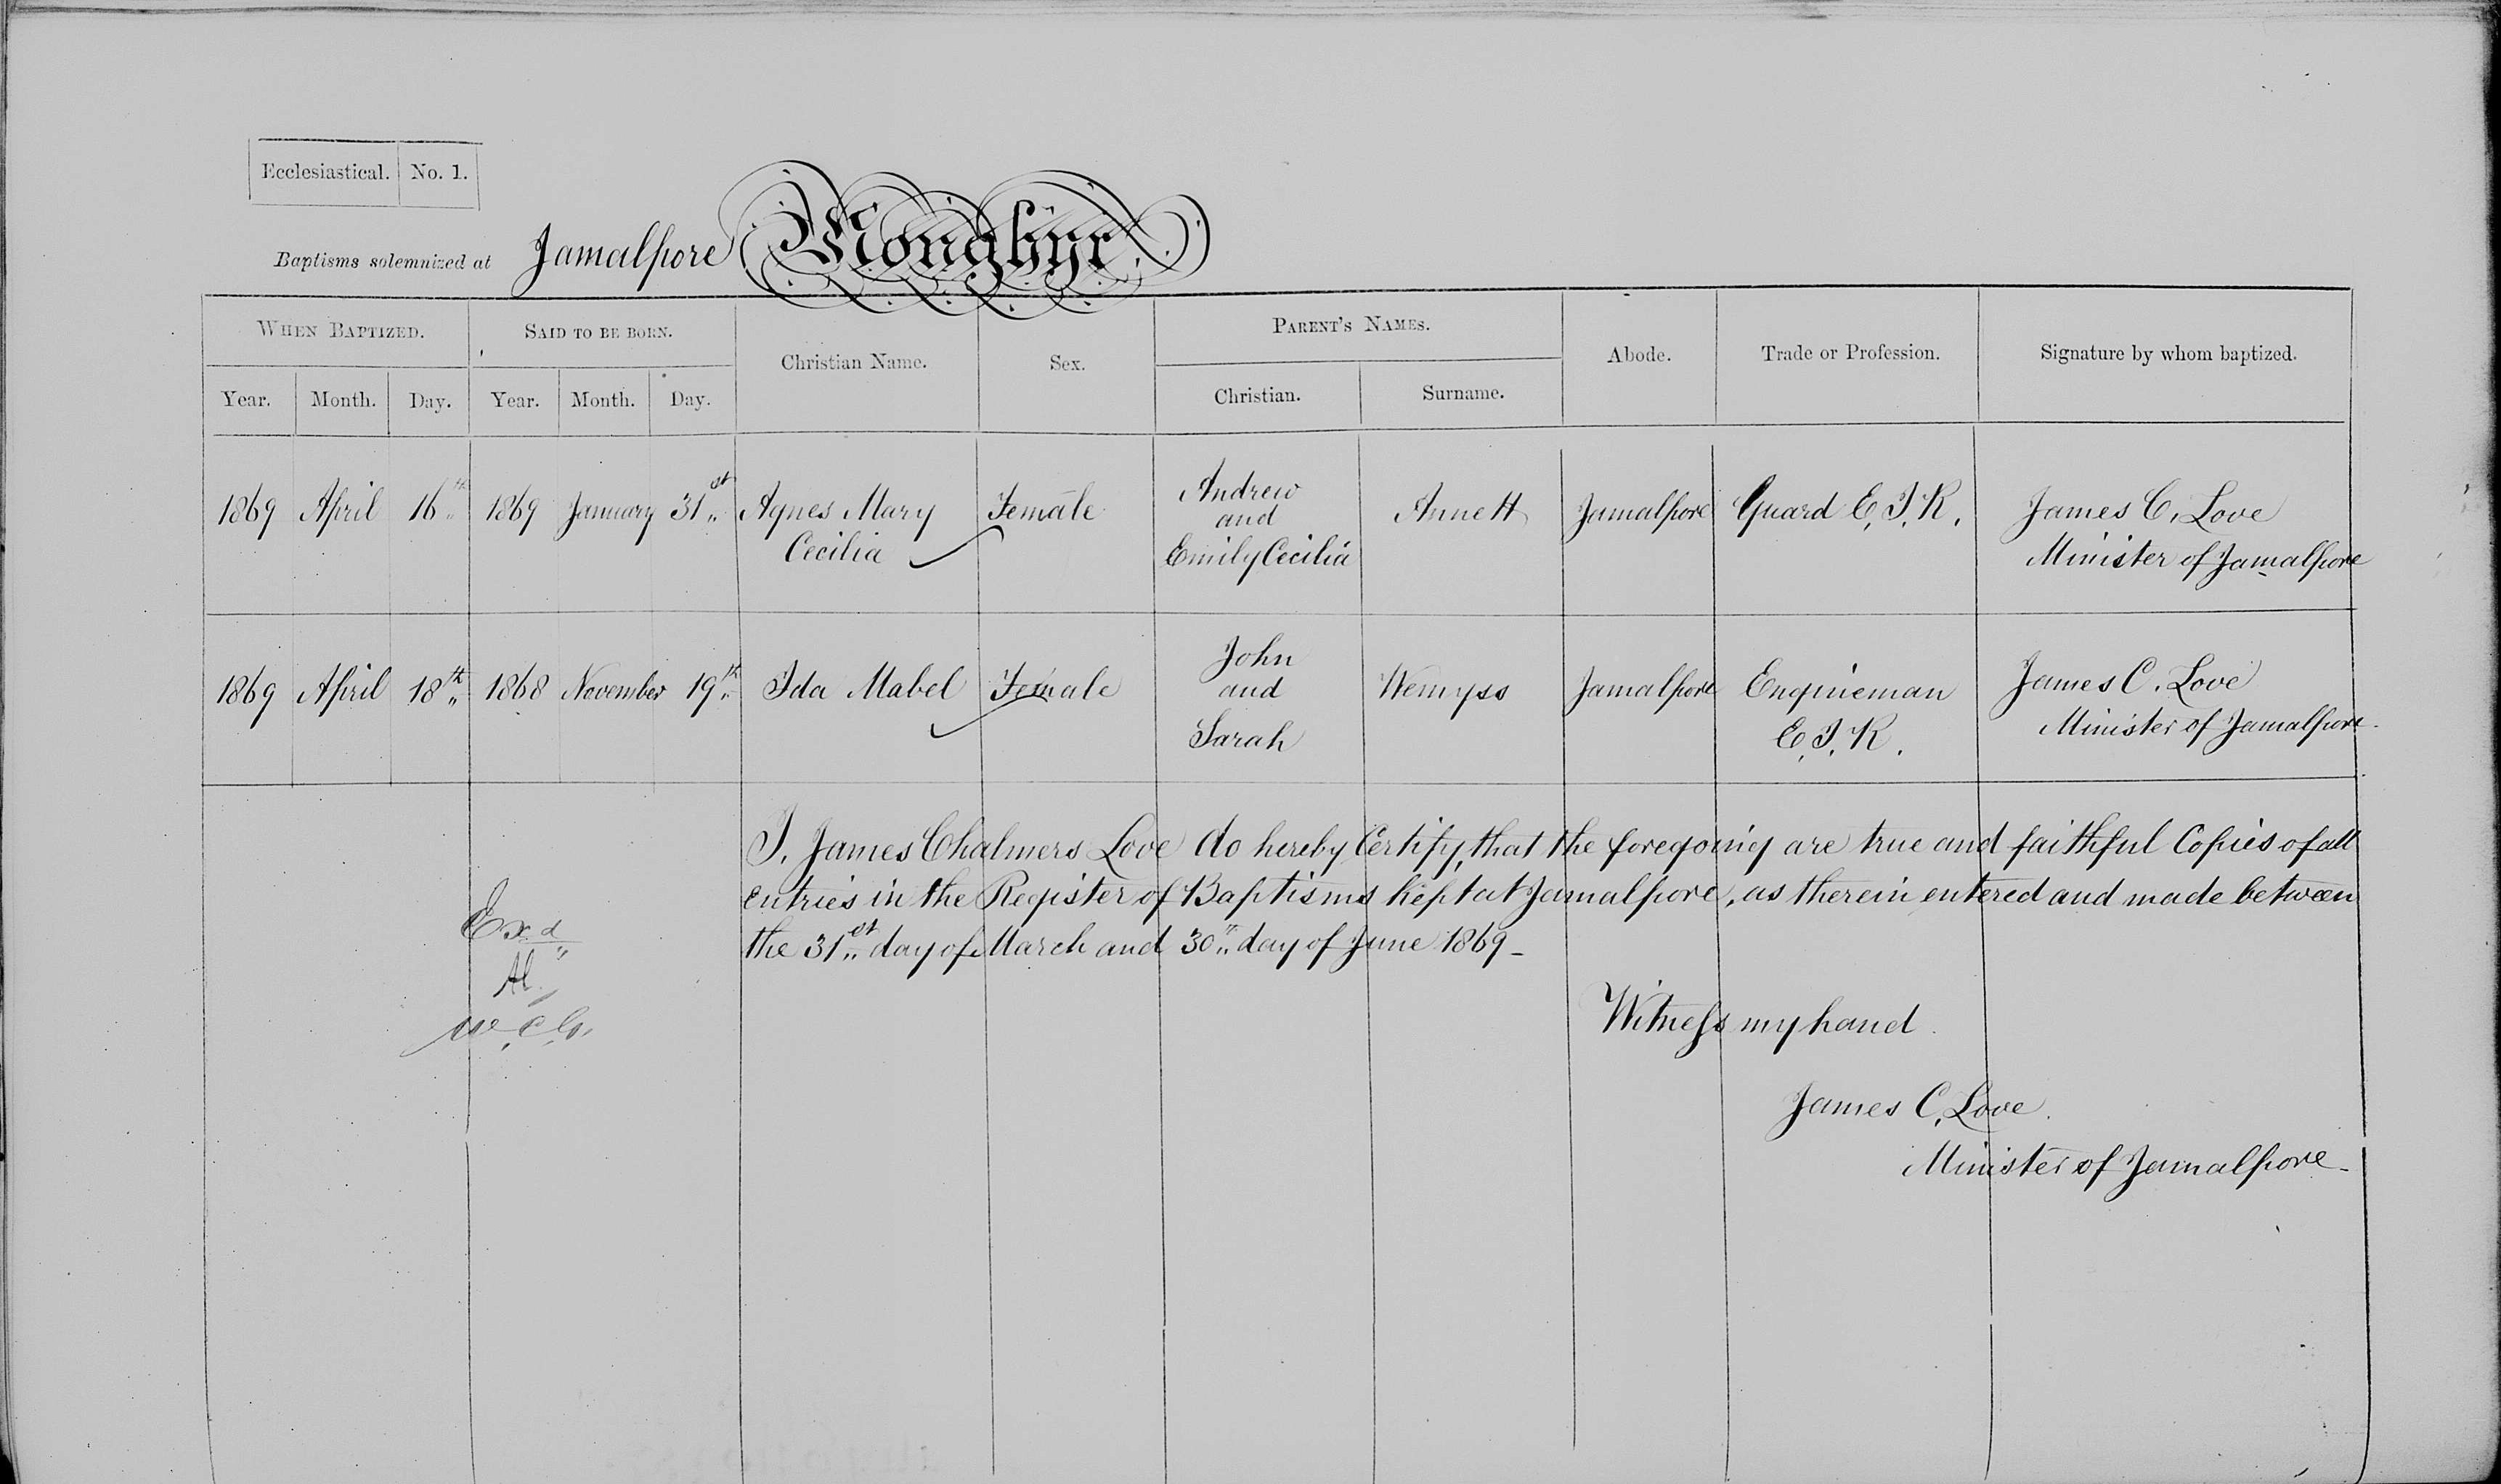 Ecclesiastical. No. 1.
Baptisms solemnized at Jamalpore Monghyr
When Baptized. Said to be born. Christian Name. Sex. Parent's Names. Abode. Trade or Profession. Signature by whom baptized.
Year. Month. Day. Year. Month. Day. Christian. Surname.
1869 April 16th 1869 January 31st Agnes Mary Cecilia Female Andrew and Emily Cecilia Annett Jamalpore Guard E. I. R. James C. Love Minister of Jamalpore
1869 April 18th 1868 November 19th Ida Mabel Female John and Sarah Wemyss Jamalpore Engineman E. I. R. James C. Love Minister of Jamalpore
I, James Chalmers Love do hereby Certify, that the foregoing are true and faithful Copies of all
entries in the Register of Baptisms kept at Jamalpore, as therein entered and made between
the 31st day of March and 30th day of June 1869
Exd
Witness my hand
James C. Love.
Minister of Jamalpore